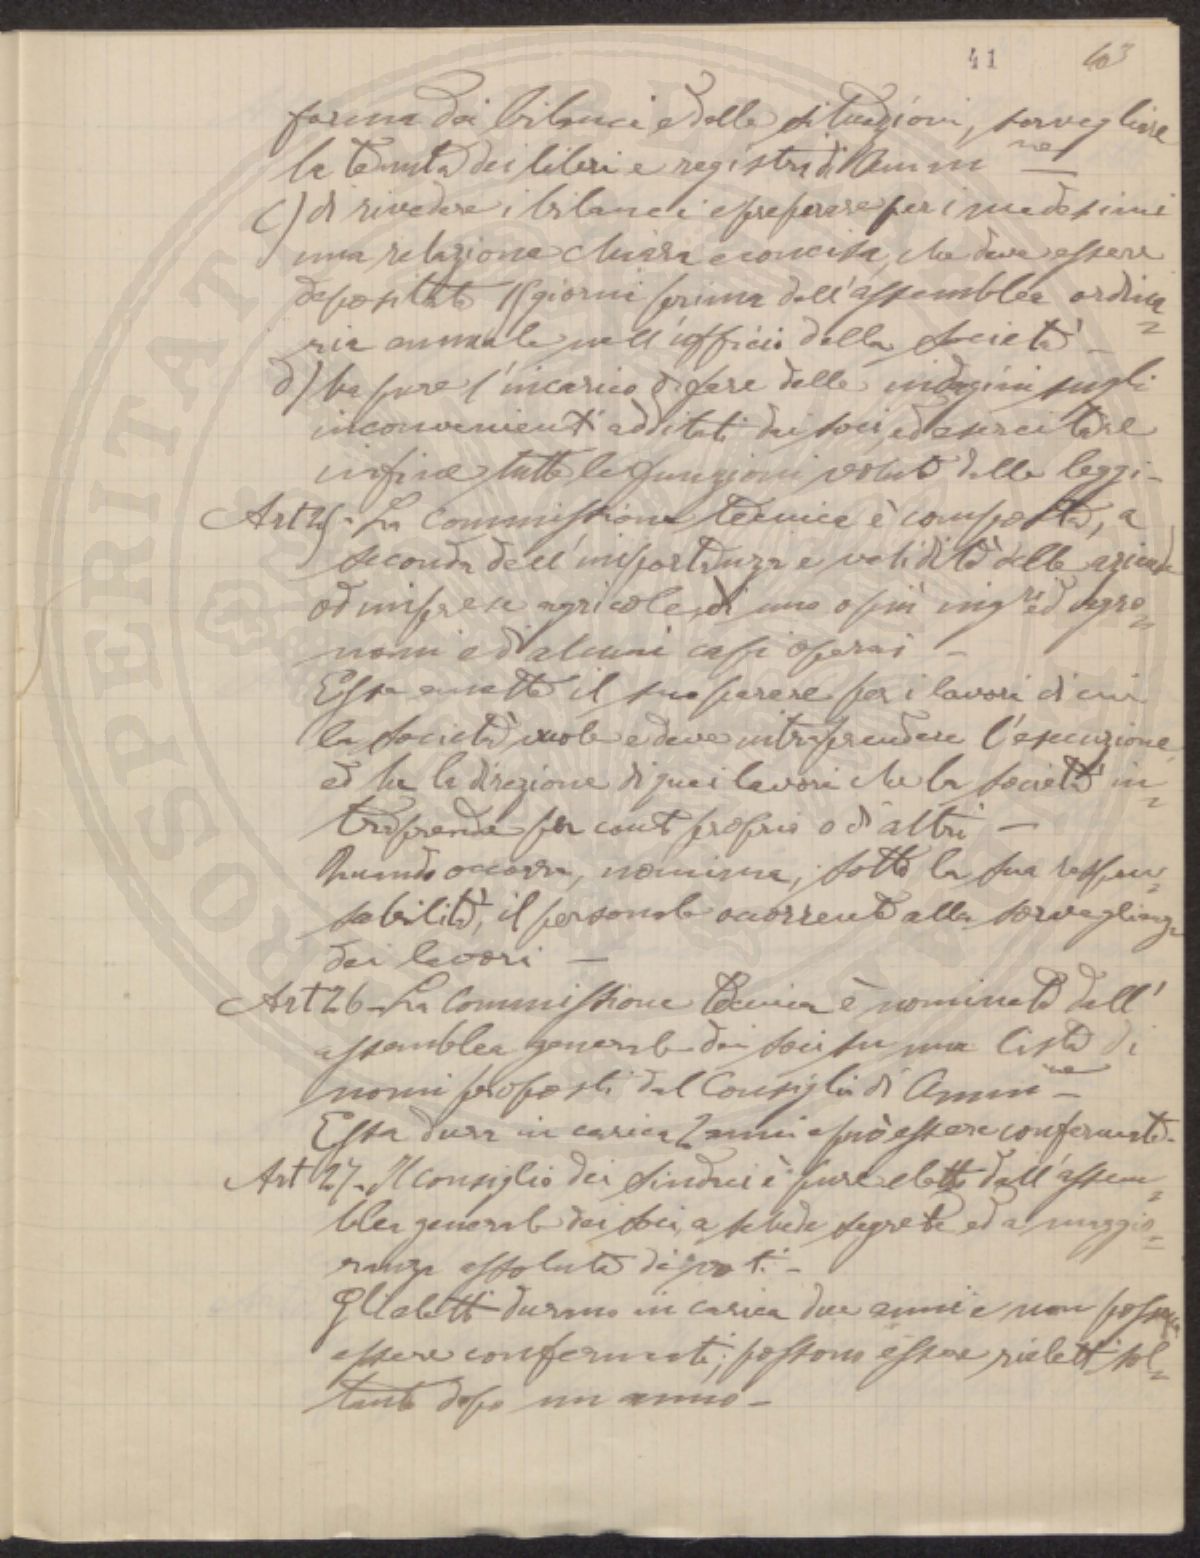 41 63
forma dei bilanci e delle situazioni, sorvegliare
la tenuta dei libri e registri di Ammne —
c) di rivedere i bilanci e preparare per i medesimi
una relazione chiara e concisa, che deve essere
depositata 15 giorni prima dell'assemblea ordina=
ria annuale nell'ufficio della Società —
d) ha pure l'incarico di fare delle indagini sugli
inconvenienti additati dai soci, ed esercitare
infine tutte le funzioni volute dalle leggi —
Art 25 - La Commissione tecnica è composta, a
seconda dell'importanza e validità delle aziende
od imprese agricole, di uno o più ingri ed agro=
nomi e di alcuni capi operai —
Essa emette il suo parere per i lavori di cui
la società vuole e deve intraprendere l'esecuzione,
ed ha la direzione di quei lavori che la società in=
traprende per conto proprio o di altri —
Quando occorra, nomina, sotto la sua respon=
sabilità, il personale occorrente alla sorveglianza
dei lavori —
Art 26 - La Commissione tecnica è nominata dall'
assemblea generale dei soci su una lista di
nomi proposti dal Consiglio di Ammne —
Essa dura in carica 2 anni e può essere confermata -
Art 27 - Il Consiglio dei Sindaci è pure eletto dall'assem=
blea generale dei soci, a schede segrete ed a maggio=
ranza assoluta di voti —
Gli eletti durano in carica due anni e non possono
essere confermati; possono essere rieletti sol=
tanto dopo un anno —
PROSPERITAT